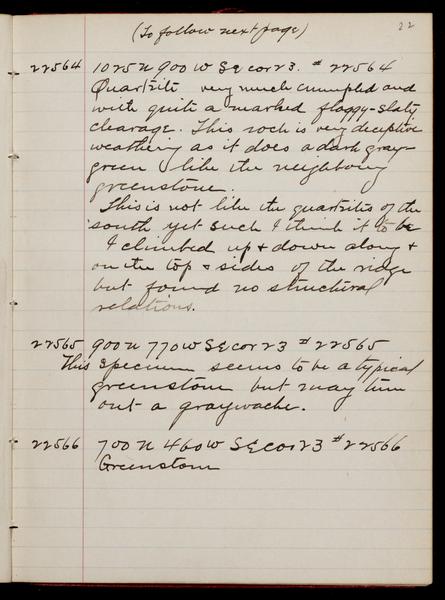 22
(To follow next page)
22564 1025N 900W SE cor 23. # 22564
Quartzite very much crumpled and
with quite a marked flaggy-slaty
clearage. This rock is very deceptive
weathering as it does a dark gray-
green like the neighboring
greenstone.
This is not like the quartzites of the
south yet such I think it to be
I climbed up & down along &
on the top & sides of the ridge
but found no structural
relations.
22565 900N 770W SE cor 23 # 22565
This specimen seems to be a typical
greenstone but may turn
out a graywacke.
22566 700N 460W SE cor 23 # 22566
Greenstone